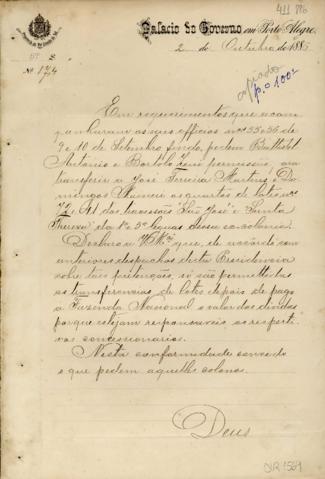 411 886
Palacio do Governo, em Porto Alegre,
2 de Outubro de 1885
2ª
Nº 174
copiado
p. o 100v
Em requerimentos que acom-
panharam os seus officios nos 35 e 36 de
9 e 10 de Setembro findo, pedem
Antonio e Bortolo permissão para
transferir a José Pereira Martins e Do-
mingos os quartos de lotes nos
das travessas "São José" e Santa
Thereza da 1ª e 5ª leguas dessa ex-colonia.
Declaro a Vmce que, de accordo com
anteriores despachos desta Presidencia
sobre taes pretenções, só são permittidas
as transferencias de lotes depois de pago
á Fazenda Nacional o valor das dividas
porque estejam responsaveis os respecti-
vos concessionarios.
Nesta conformidade concedo
o que pedem aquelles colonos.
Deus